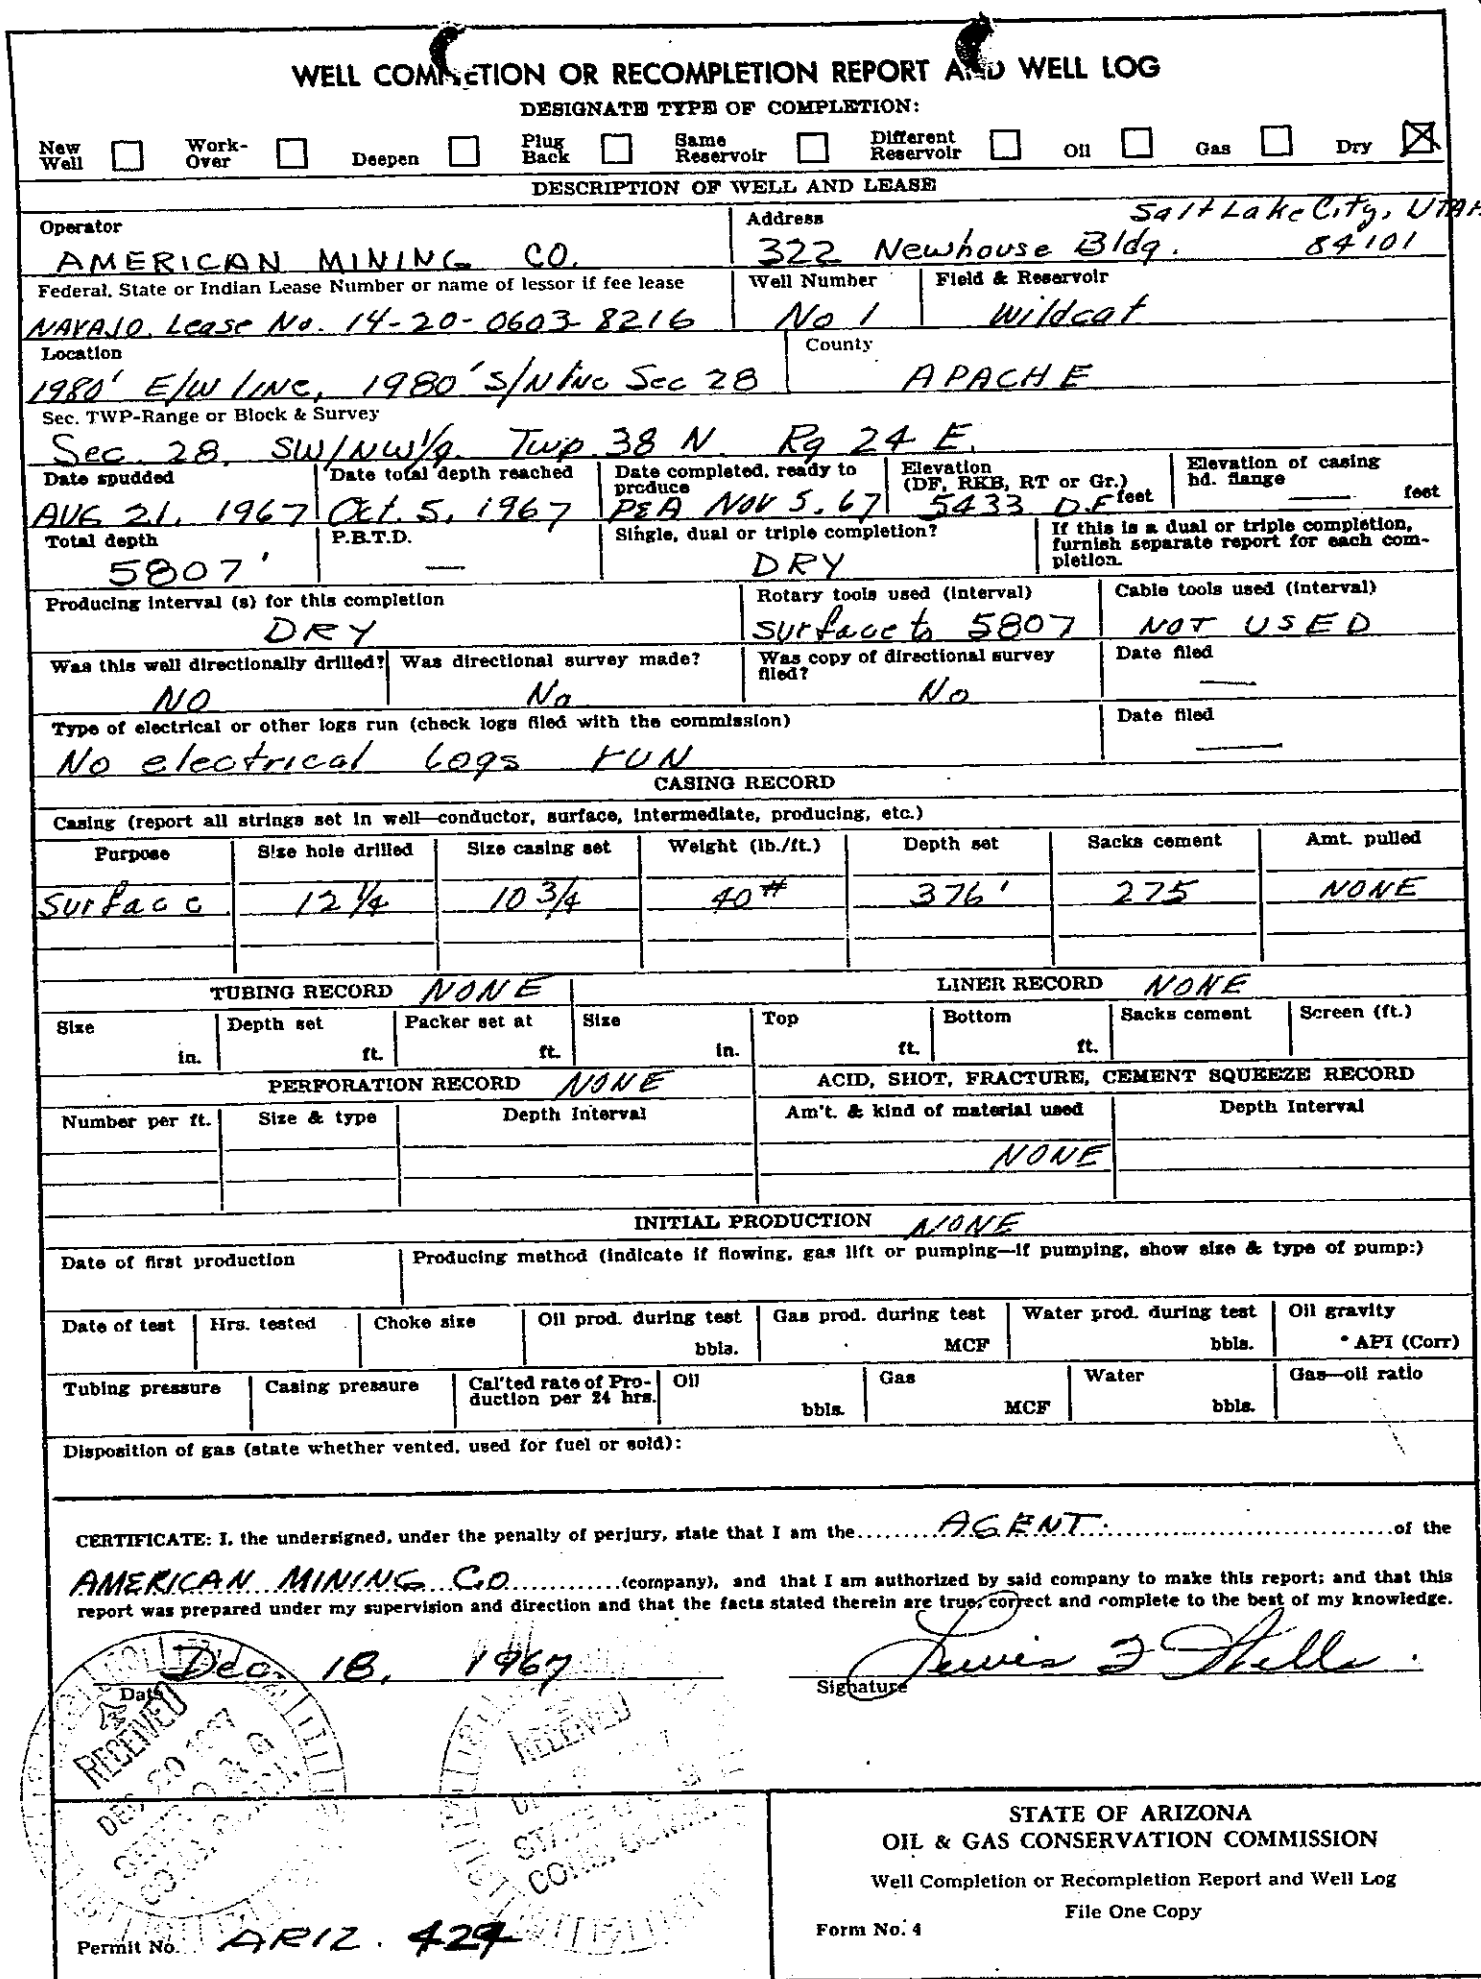 WELL COMPLETION OR RECOMPLETION REPORT AND WELL LOG
DESIGNATE TYPE OF COMPLETION:
New Well Work-Over Deepen Plug Back Same Reservoir Different Reservoir Oil Gas Dry X
DESCRIPTION OF WELL AND LEASE
Operator Address Salt Lake City, UTAH
AMERICAN MINING CO. 322 Newhouse Bldg. 84101
Federal, State or Indian Lease Number or name of lessor if fee lease Well Number Field & Reservoir
NAVAJO Lease No. 14-20-0603-8216 No 1 Wildcat
Location County
1980' E/W line, 1980' S/N line Sec 28 APACHE
Sec. TWP-Range or Block & Survey
Sec. 28, SW/NW/4 Twp 38 N Rg 24 E.
Date spudded Date total depth reached Date completed, ready to produce Elevation (DF, RKB, RT or Gr.) Elevation of casing hd. flange
AUG 21, 1967 Oct. 5, 1967 P&A NOV 5, 67 5433 D.F feet — feet
Total depth P.B.T.D. Single, dual or triple completion? If this is a dual or triple completion, furnish separate report for each completion.
5807' — DRY
Producing interval (s) for this completion Rotary tools used (interval) Cable tools used (interval)
DRY Surface to 5807 NOT USED
Was this well directionally drilled? Was directional survey made? Was copy of directional survey filed? Date filed
NO No No —
Type of electrical or other logs run (check logs filed with the commission) Date filed
No electrical logs run —
CASING RECORD
Casing (report all strings set in well—conductor, surface, intermediate, producing, etc.)
Purpose Size hole drilled Size casing set Weight (lb./ft.) Depth set Sacks cement Amt. pulled
Surface 12 1/4 10 3/4 40# 376' 275 NONE
TUBING RECORD NONE LINER RECORD NONE
Size Depth set Packer set at Size Top Bottom Sacks cement Screen (ft.)
in. ft. ft. in. ft. ft.
PERFORATION RECORD NONE ACID, SHOT, FRACTURE, CEMENT SQUEEZE RECORD
Number per ft. Size & type Depth Interval Am't. & kind of material used Depth Interval
NONE
INITIAL PRODUCTION NONE
Date of first production Producing method (indicate if flowing, gas lift or pumping—if pumping, show size & type of pump:)
Date of test Hrs. tested Choke size Oil prod. during test Gas prod. during test Water prod. during test Oil gravity
bbls. MCF bbls. ° API (Corr)
Tubing pressure Casing pressure Cal'ted rate of Production per 24 hrs. Oil Gas Water Gas—oil ratio
bbls. MCF bbls.
Disposition of gas (state whether vented, used for fuel or sold):
CERTIFICATE: I, the undersigned, under the penalty of perjury, state that I am the AGENT of the
AMERICAN MINING CO (company), and that I am authorized by said company to make this report; and that this
report was prepared under my supervision and direction and that the facts stated therein are true, correct and complete to the best of my knowledge.
Dec. 18, 1967
Date Signature
RECEIVED
DEC 20 1967
RECEIVED
STATE OF ARIZONA
OIL & GAS CONSERVATION COMMISSION
Well Completion or Recompletion Report and Well Log
File One Copy
Form No. 4
Permit No. ARIZ. 424